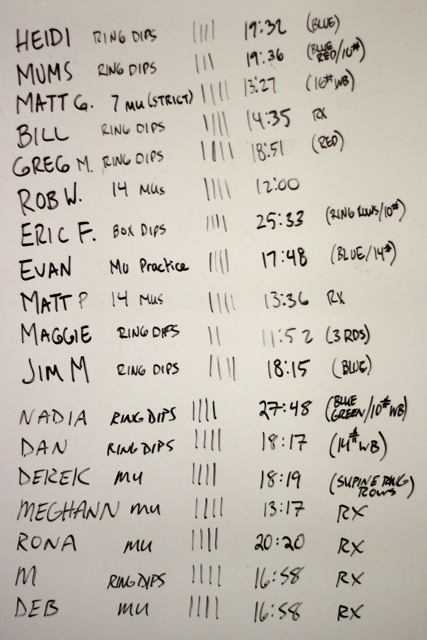 HEIDI RING DIPS |||| 19:32 (BLUE)
MUMS RING DIPS ||| 19:36 (BLUE RED/10#)
MATT G. 7 MU (STRICT) |||| 13:27 (16# WB)
BILL RING DIPS |||| 14:35 RX
GREG M. RING DIPS |||| 18:51 (RED)
ROB W. 14 MUs |||| 12:00
ERIC F. BOX DIPS |||| 25:33 (RING ROWS/10#)
EVAN MU Practice |||| 17:48 (BLUE/14#)
MATT P 14 MUs |||| 13:36 RX
MAGGIE RING DIPS || 11:52 (3 RDS)
JIM M RING DIPS |||| 18:15 (BLUE)
NADIA RING DIPS |||| 27:48 (BLUE GREEN/10# WB)
DAN RING DIPS |||| 18:17 (14# WB)
DEREK MU |||| 18:19 (SUPINE RING ROWS)
MEGHANN MU |||| 13:17 RX
RONA MU |||| 20:20 RX
M RING DIPS |||| 16:58 RX
DEB MU |||| 16:58 RX